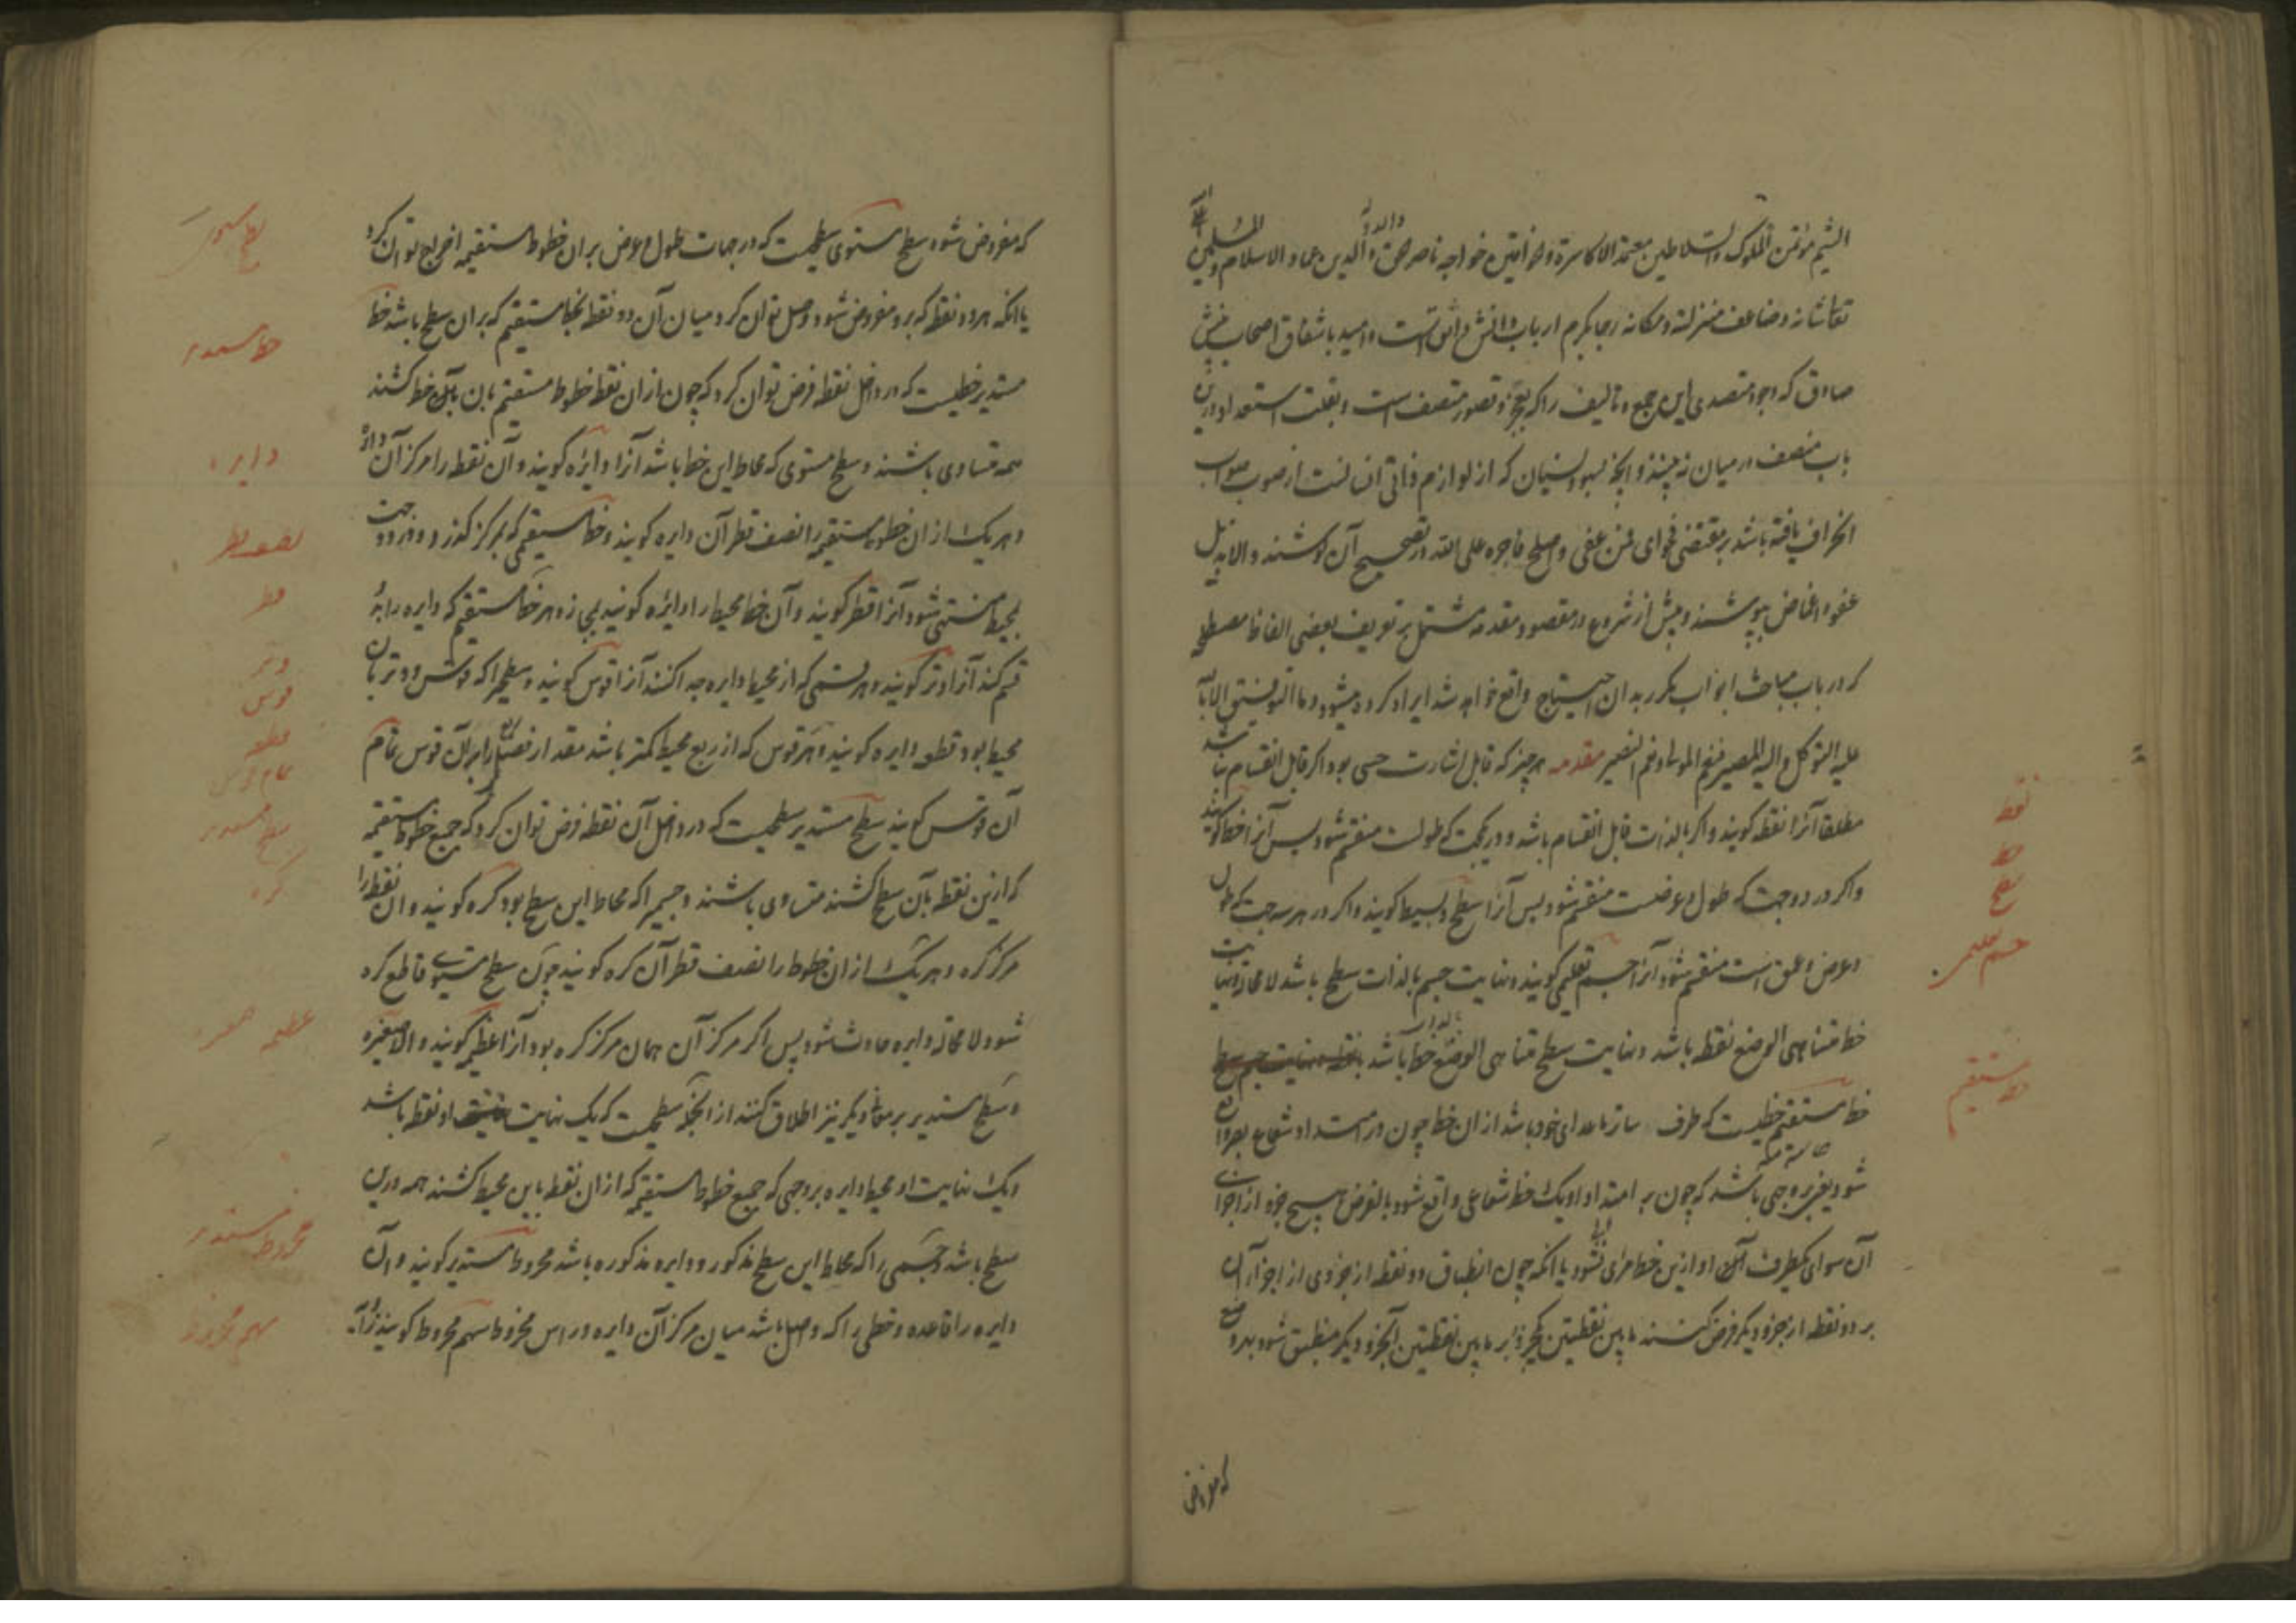 الشیم مؤتمن الملوک والسلاطین معتمد الاکاسرة والخواقین خواجه ناصر الحق والدولة والدین عماد الاسلام والمسلمین
تعالی شانه وضاعف منزلته ومکانه رجا بکرم ارباب دانش واثق است و امید باشفاق اصحاب بینش
صادق که وجود متصدی این جمع و تالیف را که بعجز و قصور متصف است و بقلت استعداد درین
باب منصف در میان نه بینند و آنچه بسهو و نسیان که از لوازم ذاتی انسانست از صوب صواب
انحراف یافته باشد بر مقتضی فحوای فمن عفی واصلح فاجره علی الله در تصحیح آن کوشند والا بذیل
عفو و اغماض بپوشند و پیش از شروع در مقصود مقدمه مشتمل بر تعریف بعضی الفاظ مصطلحه
که در باب مباحث ابواب مکرر بدان احتیاج واقع خواهد شد ایراد کرده میشود وما التوفیق الا بالله
علیه التوکل والیه المصیر فنعم المولی ونعم النصیر مقدمه هرچیز که قابل اشارت حسی بود اگر قابل انقسام نباشد
مطلقا آنرا نقطه کویند و اکر بالذات قابل انقسام باشد و در یکجهت که طولست منقسم شود بس آنرا خط کویند
و اکر در دو جهت که طول و عرضست منقسم شود بس آنرا سطح و بسیط کویند و اکر در هر سه جهت که طول
و عرض و عمق است منقسم شود آنرا جسم تعلیمی کویند و نهایت جسم بالذات سطح باشد لا محاله و نهایت
خط متناهی الوضع نقطه باشد و نهایت سطح متناهی الوضع خط باشد بالذات
خط مستقیم خطیست که طرف او ساتر ماعدای خود باشد ازان خط چون در امتداد شعاع بصر واقع
شود یعنی بر وجهی باشد که چون بر امتداد او یک خط شعاعی واقع شود بالفرض هیچ جزو از اجزای
آن سوای یکطرف او ازین خط مرئی نشود یا آنکه چون انطباق دو نقطه از جزوی از اجزاء آن
بر دو نقطه از جزو دیکر فرض کنند ما بین نقطتین یکجزو بر ما بین نقطتین آنجزو دیکر منطبق شود بهر وضع
که مفروض
نقطه
خط
سطح
جسم تعلیمی
خط مستقیم
که مفروض شود سطح مستوی سطحیست که در جهات طول و عرض بران خطوط مستقیمه اخراج توان کرد
یا آنکه هر دو نقطه که برو مفروض شود وصل توان کرد میان آن دو نقطه بخط مستقیم که بران سطح باشد خط
مستدیر خطیست که در داخل نقطه فرض توان کرد که چون ازان نقطه خطوط مستقیم بان یک خط کشند
همه متساوی باشند و سطح مستوی که محاط این خط باشد آنرا دایره کویند و آن نقطه را مرکز آن دایره
و هر یک ازان خطوط مستقیمه را نصف قطر آن دایره کویند و خط مستقیمی که بمرکز کذرد و در دو جهت
بمحیط منتهی شود آنرا قطر کویند و آن خط محیط را دایره کویند بمجاز و هر خط مستقیم که دایره را بدو
قسم کند آنرا وتر کویند و هر قسمی که از محیط دایره جدا کند آنرا قوس کویند و سطحی را که قوس و وتر بان
محیط بود قطعه دایره کویند و هر قوس که از ربع محیط کمتر باشد مقدار فضل ربع را بر آن قوس تمام
آن قوس کویند سطح مستدیر سطحیست که در داخل آن نقطه فرض توان کرد که جمیع خطوط مستقیمه
که ازین نقطه بآن سطح کشند متساوی باشند و جسمی را که محاط این سطح بود کره کویند و ان نقطه را
مرکز کره و هر یک ازان خطوط را نصف قطر آن کره کویند چون سطح مستوی قاطع کره
شود لا محاله دایره حادث شود پس اکر مرکز آن همان مرکز کره بود آنرا عظیمه کویند و الا صغیره
و سطح مستدیر بر معانی دیکر نیز اطلاق کنند از انجمله سطحیست که یک نهایت او نقطه باشد
و یک نهایت او محیط دایره بر وجهی که جمیع خطوط مستقیمه که ازان نقطه باین محیط کشند همه درین
سطح باشد و جسمی را که محاط این سطح مذکور و دایره مذکوره باشد مخروط مستدیر کویند و آن
دایره را قاعده و خطی را که واصل باشد میان مرکز آن دایره و راس مخروط سهم مخروط کویند
سطح مستوی
خط مستدیر
دایره
نصف قطر
قطر
وتر
قوس
قطعه
تمام قوس
سطح مستدیر
کره
عظیمه صغیره
مخروط مستدیر
سهم مخروط